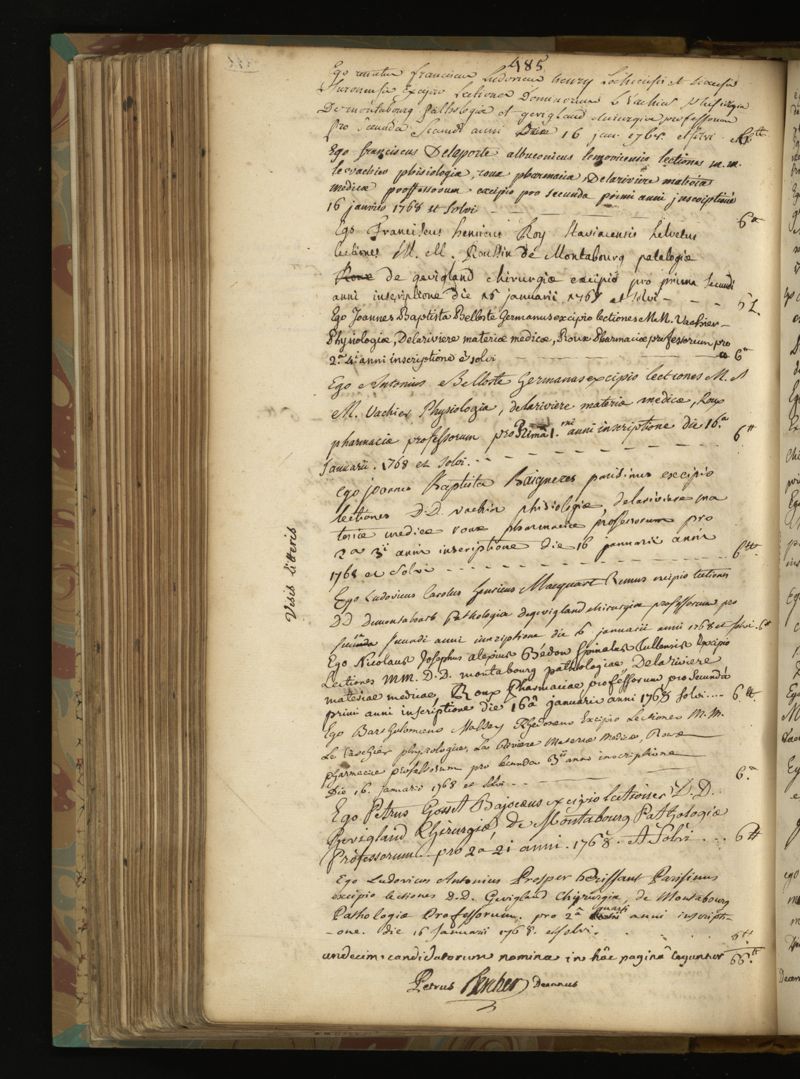 485
Ego franciscus Ludovicus henry et
Turonensis excipio Lectiones Dominorum Le Vacher phisiologia
De montabourg Pathologia et gevigland chirurgia professorum
pro secunda secundi anni Die 16 jan. 1768. et solvi - 6tt
Ego franciscus Delaporte lemovicensis lectiones m.m.
levacher phisiologia, roux pharmacia Delariviere materia
medica professorum excipio pro secunda primi anni inscriptione
16 januario 1768 et solvi - - - 6tt
Ego Franciscus henricus Roy helvetus
lectiones M. M. Roussin de Montabourg patalogiæ
Roux de gevigland chirurgiæ excipio pro prima secundi
anni inscriptione die 16 januarii 1768 et solvi - - - 6 L.
Ego Joannes Baptista Belloste Germanus excipio lectiones M.M. Vachier
Physiologiæ, Delariviere materiæ medicæ, Roux Pharmaciæ professorum pro
2.a 4.i anni inscriptione et solvi - - - 6tt
Ego Antonius Belloste Germanus excipio lectiones M.
M. Vachier Physiologia, delariviere materia medicæ, Roux
pharmaciæ professorum pro Prima 1.mi anni inscriptione die 16.a
Januarii. 1768 et solvi. - - - 6tt
Ego joannes Baptista Baigneres excipio
lectiones D.D. vachier phisiologiæ, delariviere ma
teriæ medicæ roux pharmaciæ professorum pro
2a 3i anni inscriptione die 16 januarii anni
1768 et solvi - - - 6tt
Visis Litteris
Ego Ludovicus Carolus henricus Macquart Remus excipio lectiones
D.D. demontabourg Pathologia degevigland chirurgiæ professorum pro
secunda secundi anni inscriptione die 16 januarii anni 1768 et solvi. 6tt
Ego Nicolaus Josephus alexius Bédon Tullensis Excipio
Lectiones MM. D.D. montabourg pathologiae, Delariviere
materiae medicae, Roux Pharmaciae professorum pro Secundâ
primi anni inscriptione die 16â januarii anni 1768 solvi - - - 6tt
Ego Bartholomeus Excipio Lectiones M.M.
Le Vachier physiologiæ, La Riviere Materiæ Medicæ, Roux
pharmaciæ professorum pro secunda 3ii anni inscriptione
Die 16. Januarii 1768 et solvi - - - 6tt
Ego Petrus Gosset Bajocæus excipio lectiones D.D.
Gevigland Chirurgiæ, de Montabourg Pathologiæ
Professorum pro 2a 2i anni. 1768. Et Solvi . . . 6tt
Ego Ludovicus Antonius Prosper herissant Parisinus
excipio lectiones D.D. Gevigland Chirurgiæ, de Montabourg
Pathologiæ Professorum. pro 2â quarti anni inscripti-
-one. die 16 Januarii 1768. et solvi. 6tt
undecim candidatorum nomina in hâc paginâ leguntur 66tt
Petrus Bercher Decanus